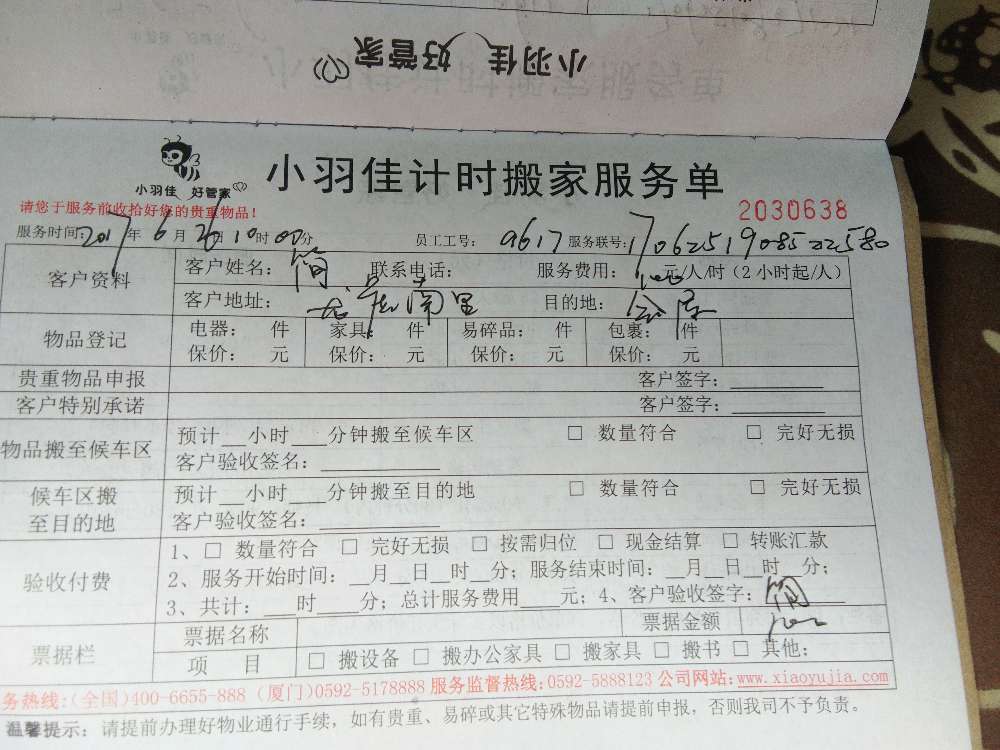 小羽佳 好管家
小羽佳 好管家
小羽佳计时搬家服务单
请您于服务前收拾好您的贵重物品！
2030638
服务时间：2017年6月26日10时00分 员工工号：9617 服务联号：170625190852258​0
客户资料 客户姓名：简 联系电话： 服务费用：100元/人/时（2小时起/人）
客户地址： 南里 目的地：
物品登记 电器： 件 家具： 件 易碎品： 件 包裹： 件
保价： 元 保价： 元 保价： 元 保价： 元
贵重物品申报 客户签字：
客户特别承诺 客户签字：
物品搬至候车区 预计__小时___分钟搬至候车区 □ 数量符合 □ 完好无损
客户验收签名：
候车区搬至目的地 预计__小时___分钟搬至目的地 □ 数量符合 □ 完好无损
客户验收签名：
验收付费 1、□ 数量符合 □ 完好无损 □ 按需归位 □ 现金结算 □ 转账汇款
2、服务开始时间：__月__日__时__分；服务结束时间：__月__日__时__分；
3、共计：___时____分；总计服务费用____元；4、客户验收签字：简
票据栏 票据名称 票据金额
项 目 □ 搬设备 □ 搬办公家具 □ 搬家具 □ 搬书 □ 其他：
务热线：(全国)400-6655-888 (厦门)0592-5178888 服务监督热线：0592-5888123 公司网站：www.xiaoyujia.com
温馨提示：请提前办理好物业通行手续，如有贵重、易碎或其它特殊物品请提前申报，否则我司不予负责。